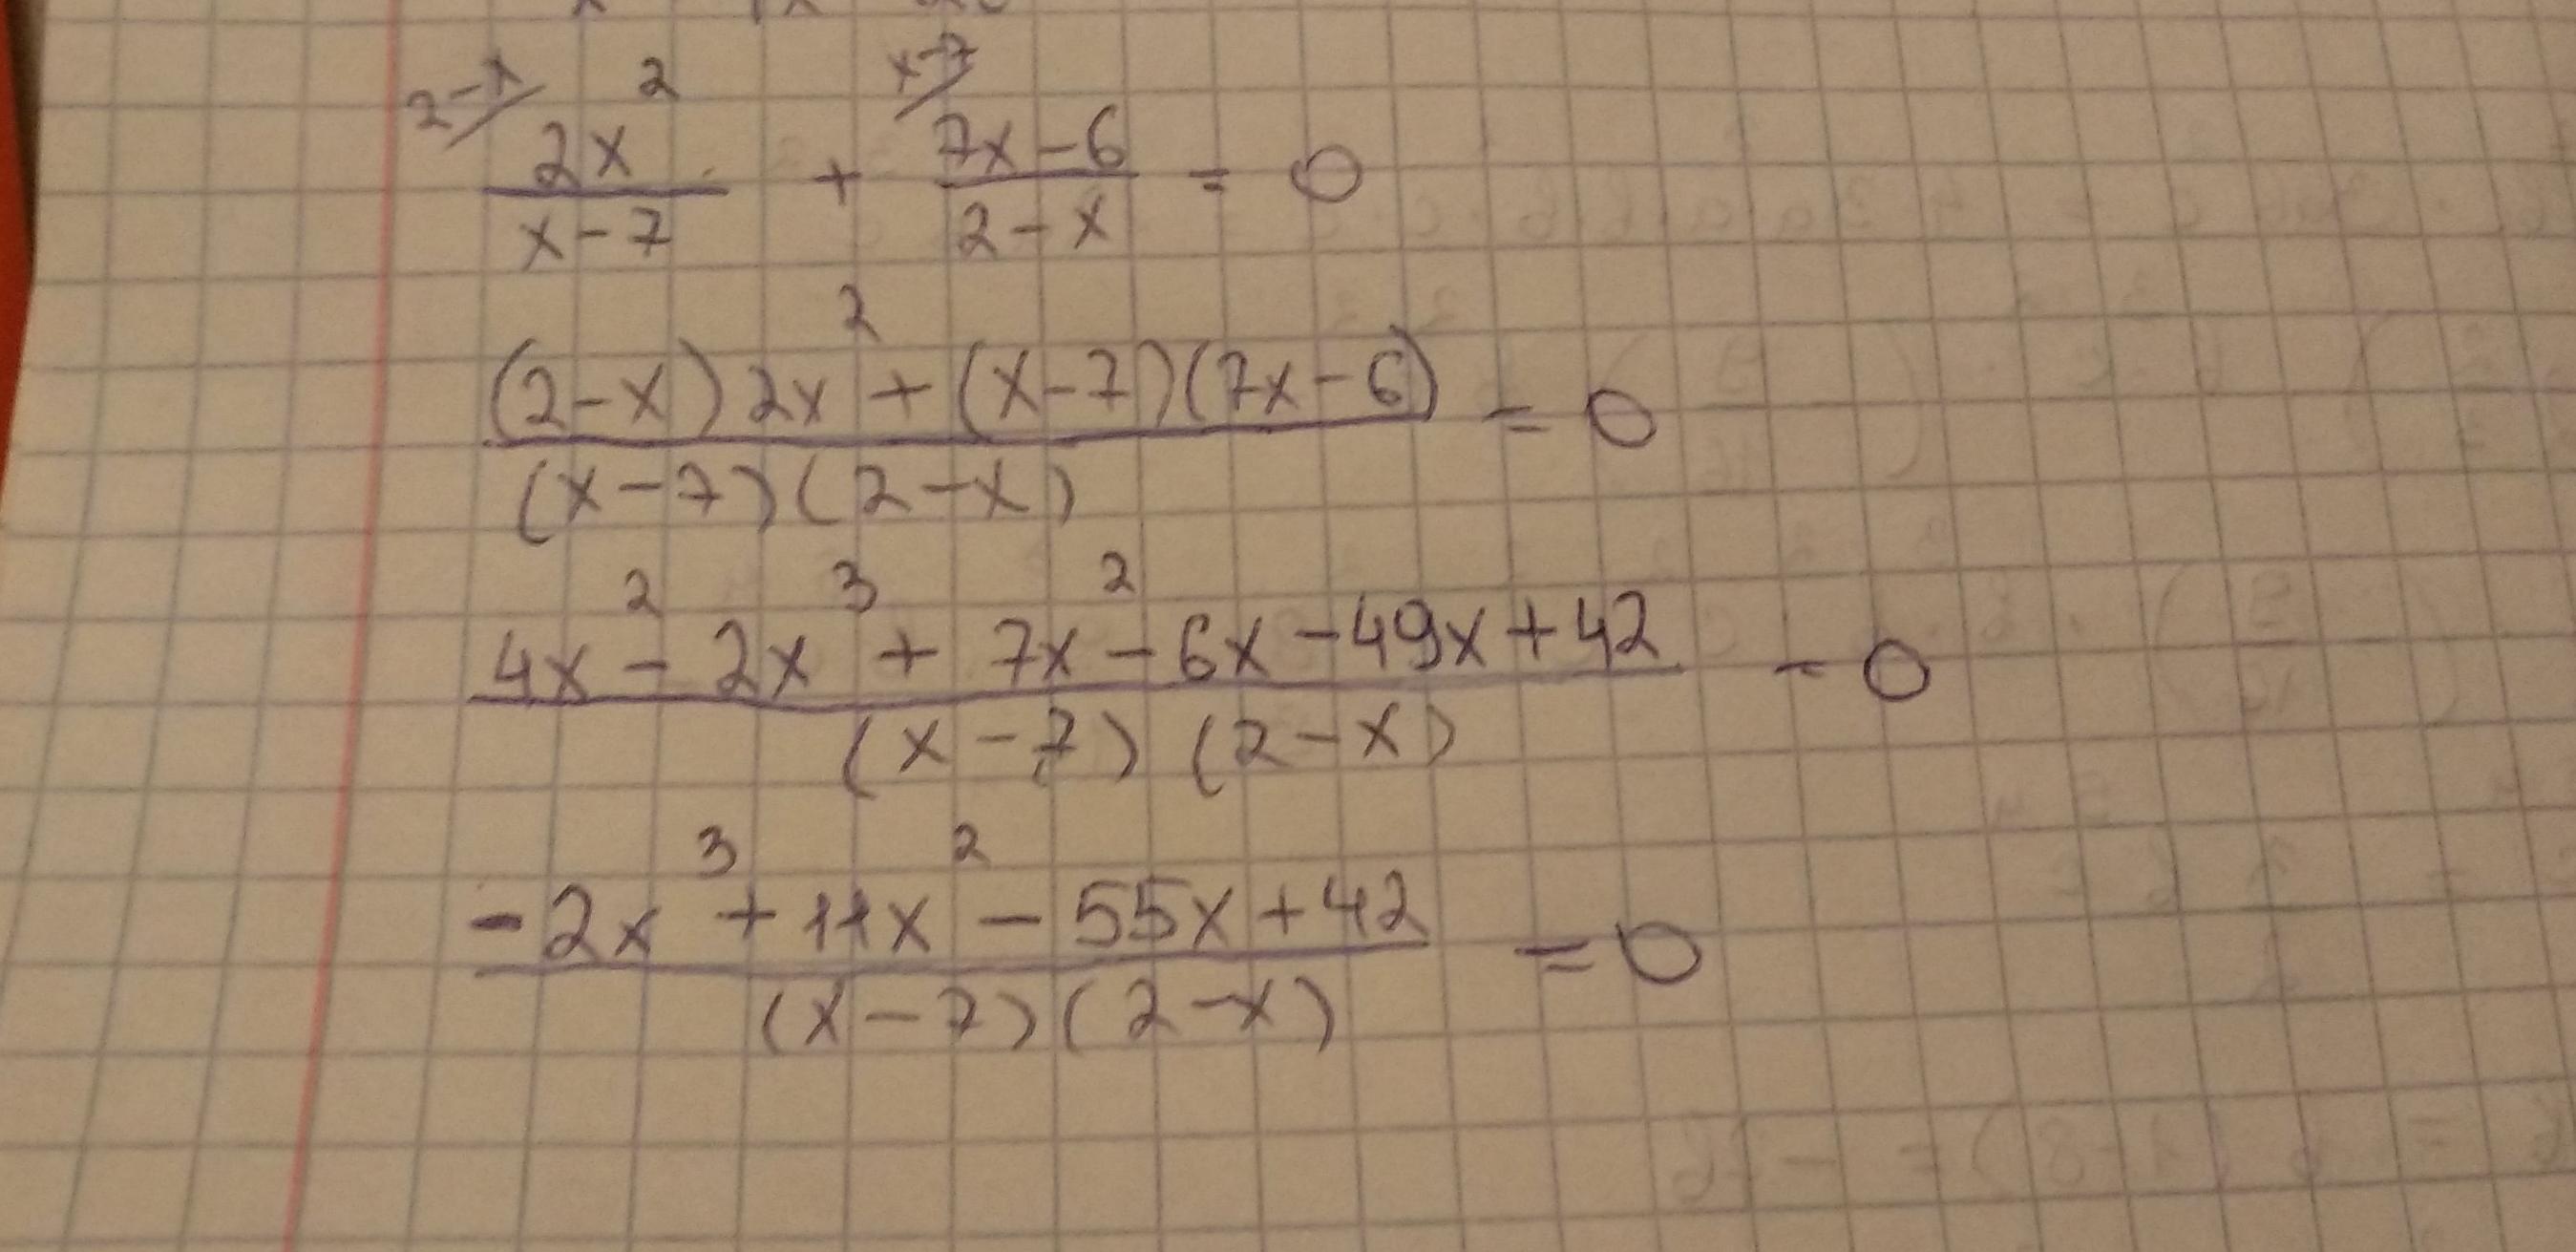 2-x/ 2x² / x-7 + x-7/ 7x-6 / 2-x = 0
(2-x)2x² + (x-7)(7x-6) / (x-7)(2-x) = 0
4x² - 2x³ + 7x² - 6x - 49x + 42 / (x-7)(2-x) = 0
-2x³ + 11x² - 55x + 42 / (x-7)(2-x) = 0